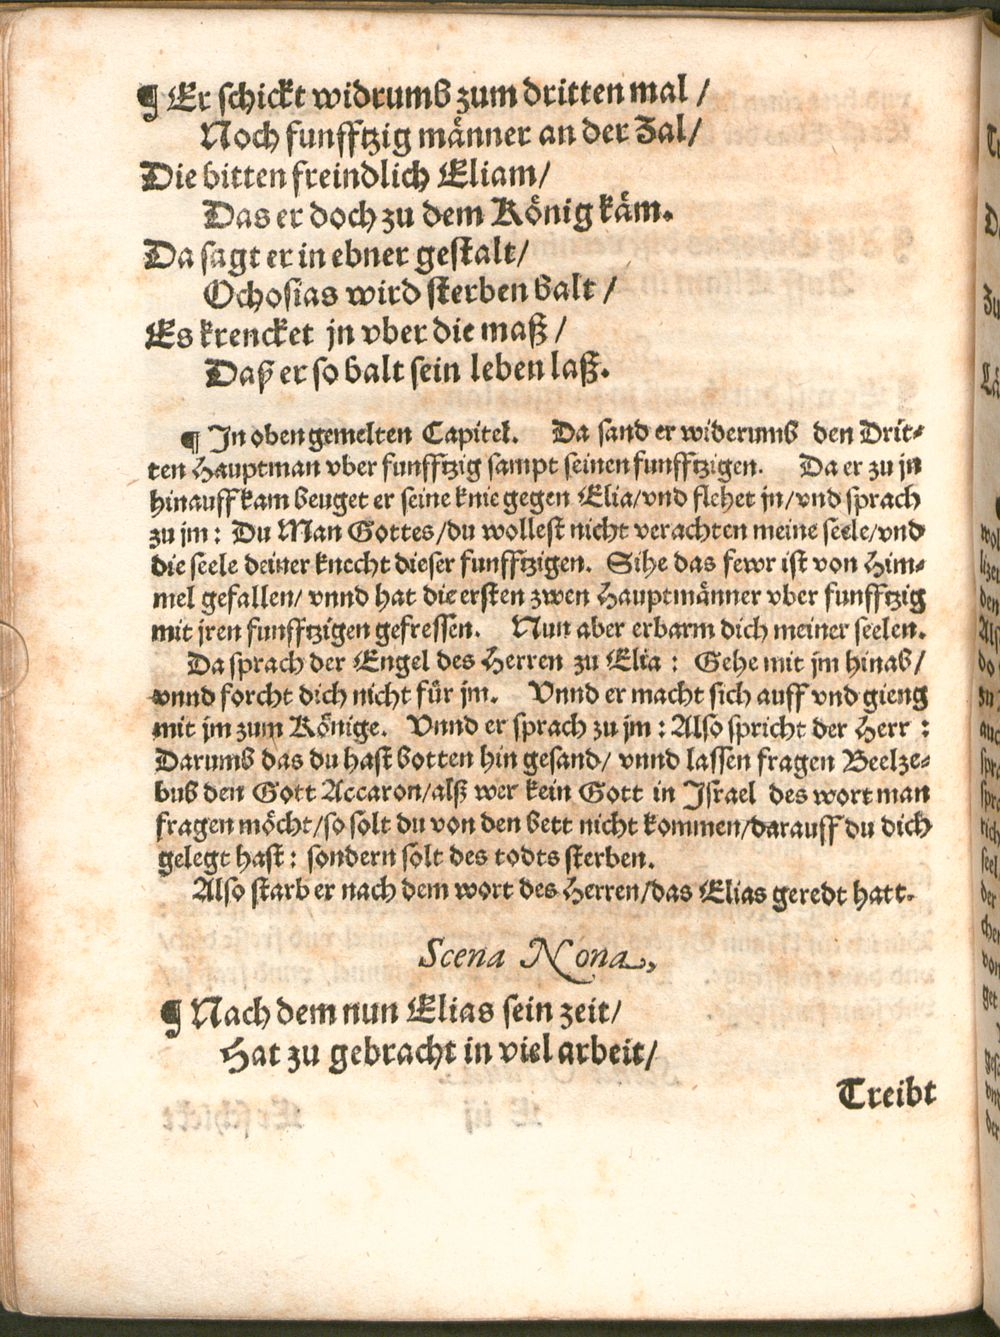 ¶ Er schickt widrumb zum dritten mal /
Noch funfftzig männer an der Zal /
Die bitten freindlich Eliam /
Das er doch zu dem König käm.
Da sagt er in ebner gestalt /
Ochosias wird sterben balt /
Es krencket jn vber die maß /
Daß er so balt sein leben laß.
¶ In oben gemelten Capitel. Da sand er widerumb den Drit-
ten Hauptman vber funfftzig sampt seinen funfftzigen. Da er zu jn
hinauff kam beuget er seine knie gegen Elia / vnd flehet jn / vnd sprach
zu jm : Du Man Gottes / du wollest nicht verachten meine seele / vnd
die seele deiner knecht dieser funfftzigen. Sihe das fewr ist von Him-
mel gefallen / vnnd hat die ersten zwen Hauptmänner vber funfftzig
mit jren funfftzigen gefressen. Nun aber erbarm dich meiner seelen.
Da sprach der Engel des Herren zu Elia : Gehe mit jm hinab /
vnnd forcht dich nicht für jm. Vnnd er macht sich auff vnd gieng
mit jm zum Könige. Vnnd er sprach zu jm : Also spricht der Herr :
Darumb das du hast botten hin gesand / vnnd lassen fragen Beelze-
bub den Gott Accaron / alß wer kein Gott in Israel des wort man
fragen möcht / so solt du von den bett nicht kommen / darauff du dich
gelegt hast : sondern solt des todts sterben.
Also starb er nach dem wort des Herren / das Elias geredt hatt.
Scena Nona,
¶ Nach dem nun Elias sein zeit /
Hat zu gebracht in viel arbeit /
Treibt